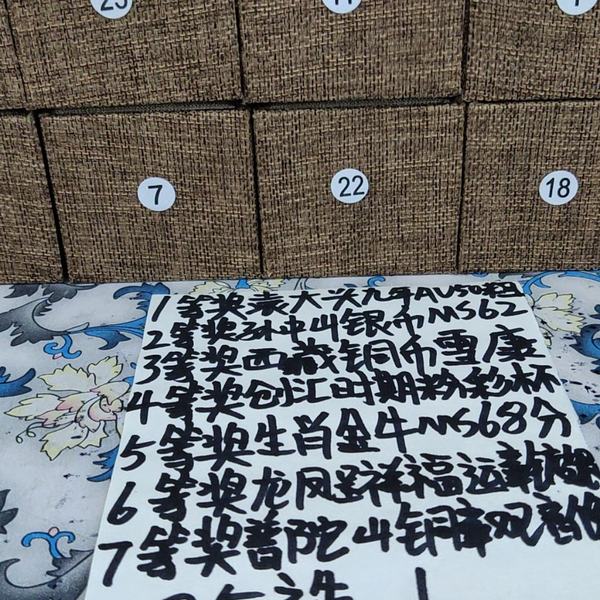 7
22
18
1等奖袁大头九年AU50
2等奖孙中山银币MS62
3等奖西藏铜币雪康
4等奖创汇时期粉彩杯
5等奖生肖金牛MS68分
6等奖龙凤呈祥福运
7等奖普陀山铜章观音